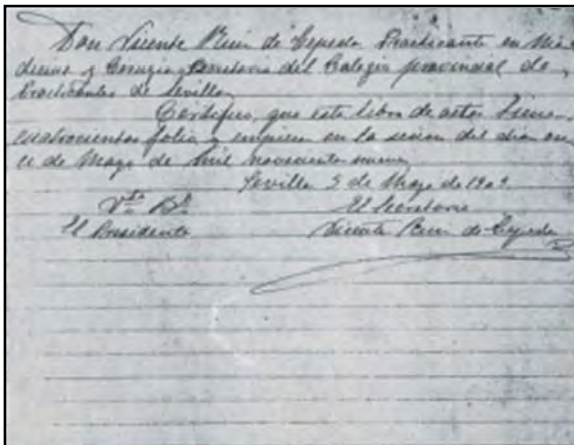 Don Vicente Ruiz de Cepeda Practicante en Me
dicina y Cirugia y Secretario del Colegio provincial de
Practicantes de Sevilla,
Certifico, que este libro de actas tiene
cuatrocientos folios y empieza en la sesion del dia on
ce de Mayo de mil novecientos nueve
Sevilla 5 de Mayo de 1909.
Vto Bo El Secretario
El Presidente Vicente Ruiz de Cepeda